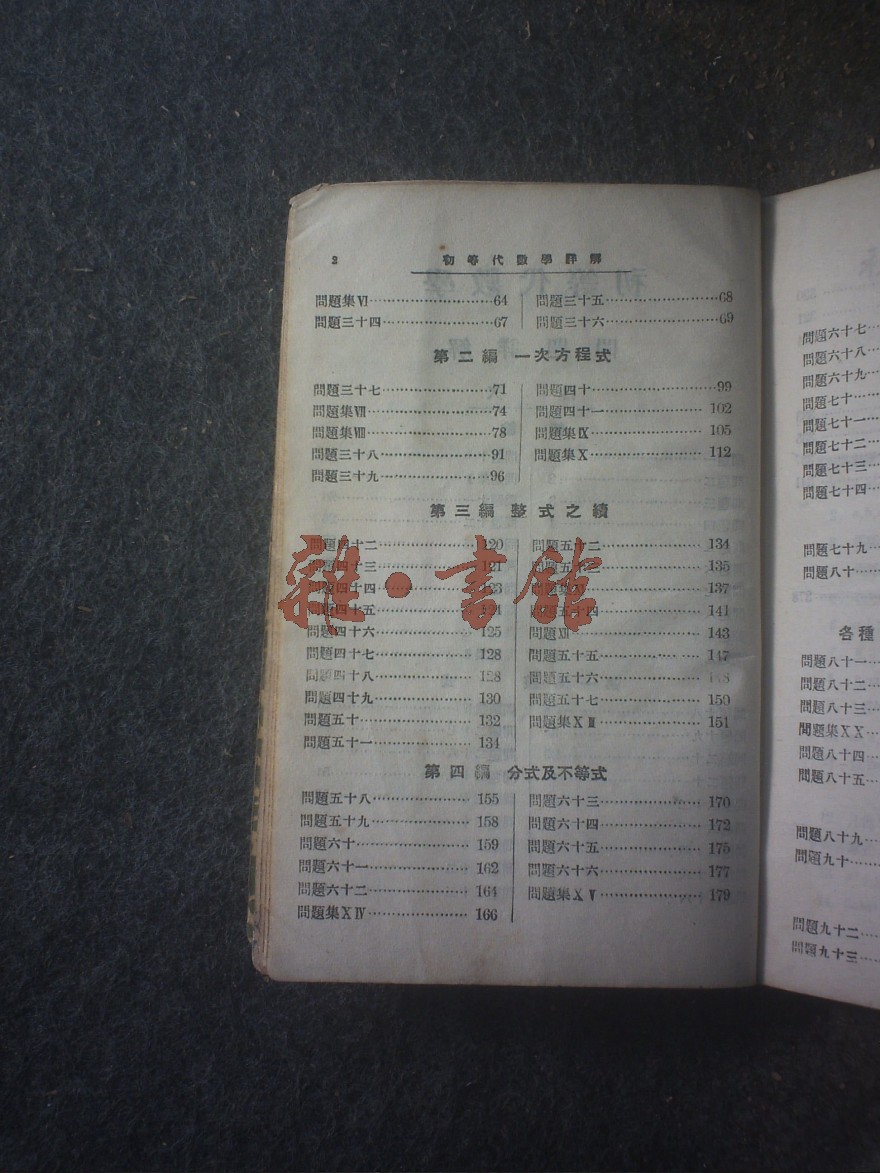 2
初等代數學詳解
問題集Ⅵ……64
問題三十四……67
問題三十五……68
問題三十六……69
第二編 一次方程式
問題三十七……71
問題集Ⅶ……74
問題集Ⅷ……78
問題三十八……91
問題三十九……96
問題四十……99
問題四十一……102
問題集Ⅸ……105
問題集Ⅹ……112
第三編 整式之續
問題四十二……120
問題四十三……121
問題四十四……123
問題四十五……124
問題四十六……125
問題四十七……128
問題四十八……128
問題四十九……130
問題五十……132
問題五十一……134
問題五十二……134
問題五十三……135
問題集Ⅺ……137
問題五十四……141
問題Ⅻ……143
問題五十五……147
問題五十六……148
問題五十七……150
問題集ⅩⅢ……151
第四編 分式及不等式
問題五十八……155
問題五十九……158
問題六十……159
問題六十一……162
問題六十二……164
問題集ⅩⅣ……166
問題六十三……170
問題六十四……172
問題六十五……175
問題六十六……177
問題集ⅩⅤ……179
問題六十七
問題六十八
問題六十九
問題七十
問題七十一
問題七十二
問題七十三
問題七十四
問題七十九
問題八十
各種
問題八十一
問題八十二
問題八十三
問題集ⅩⅩ
問題八十四
問題八十五
問題八十九
問題九十
問題九十二
問題九十三
雜·書館